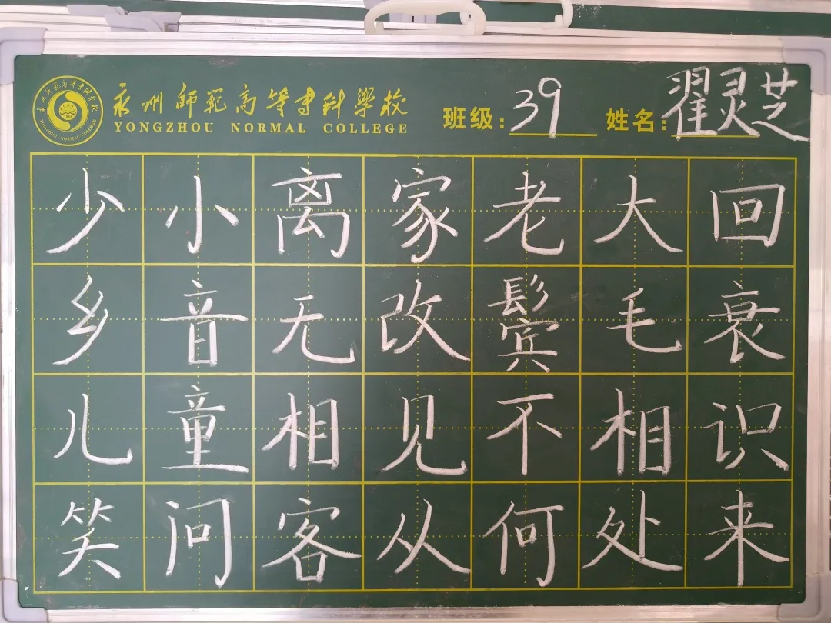 永州师范高等专科学校
YONGZHOU NORMAL COLLEGE
班级:39 姓名:翟灵芝
少小离家老大回
乡音无改鬓毛衰
儿童相见不相识
笑问客从何处来